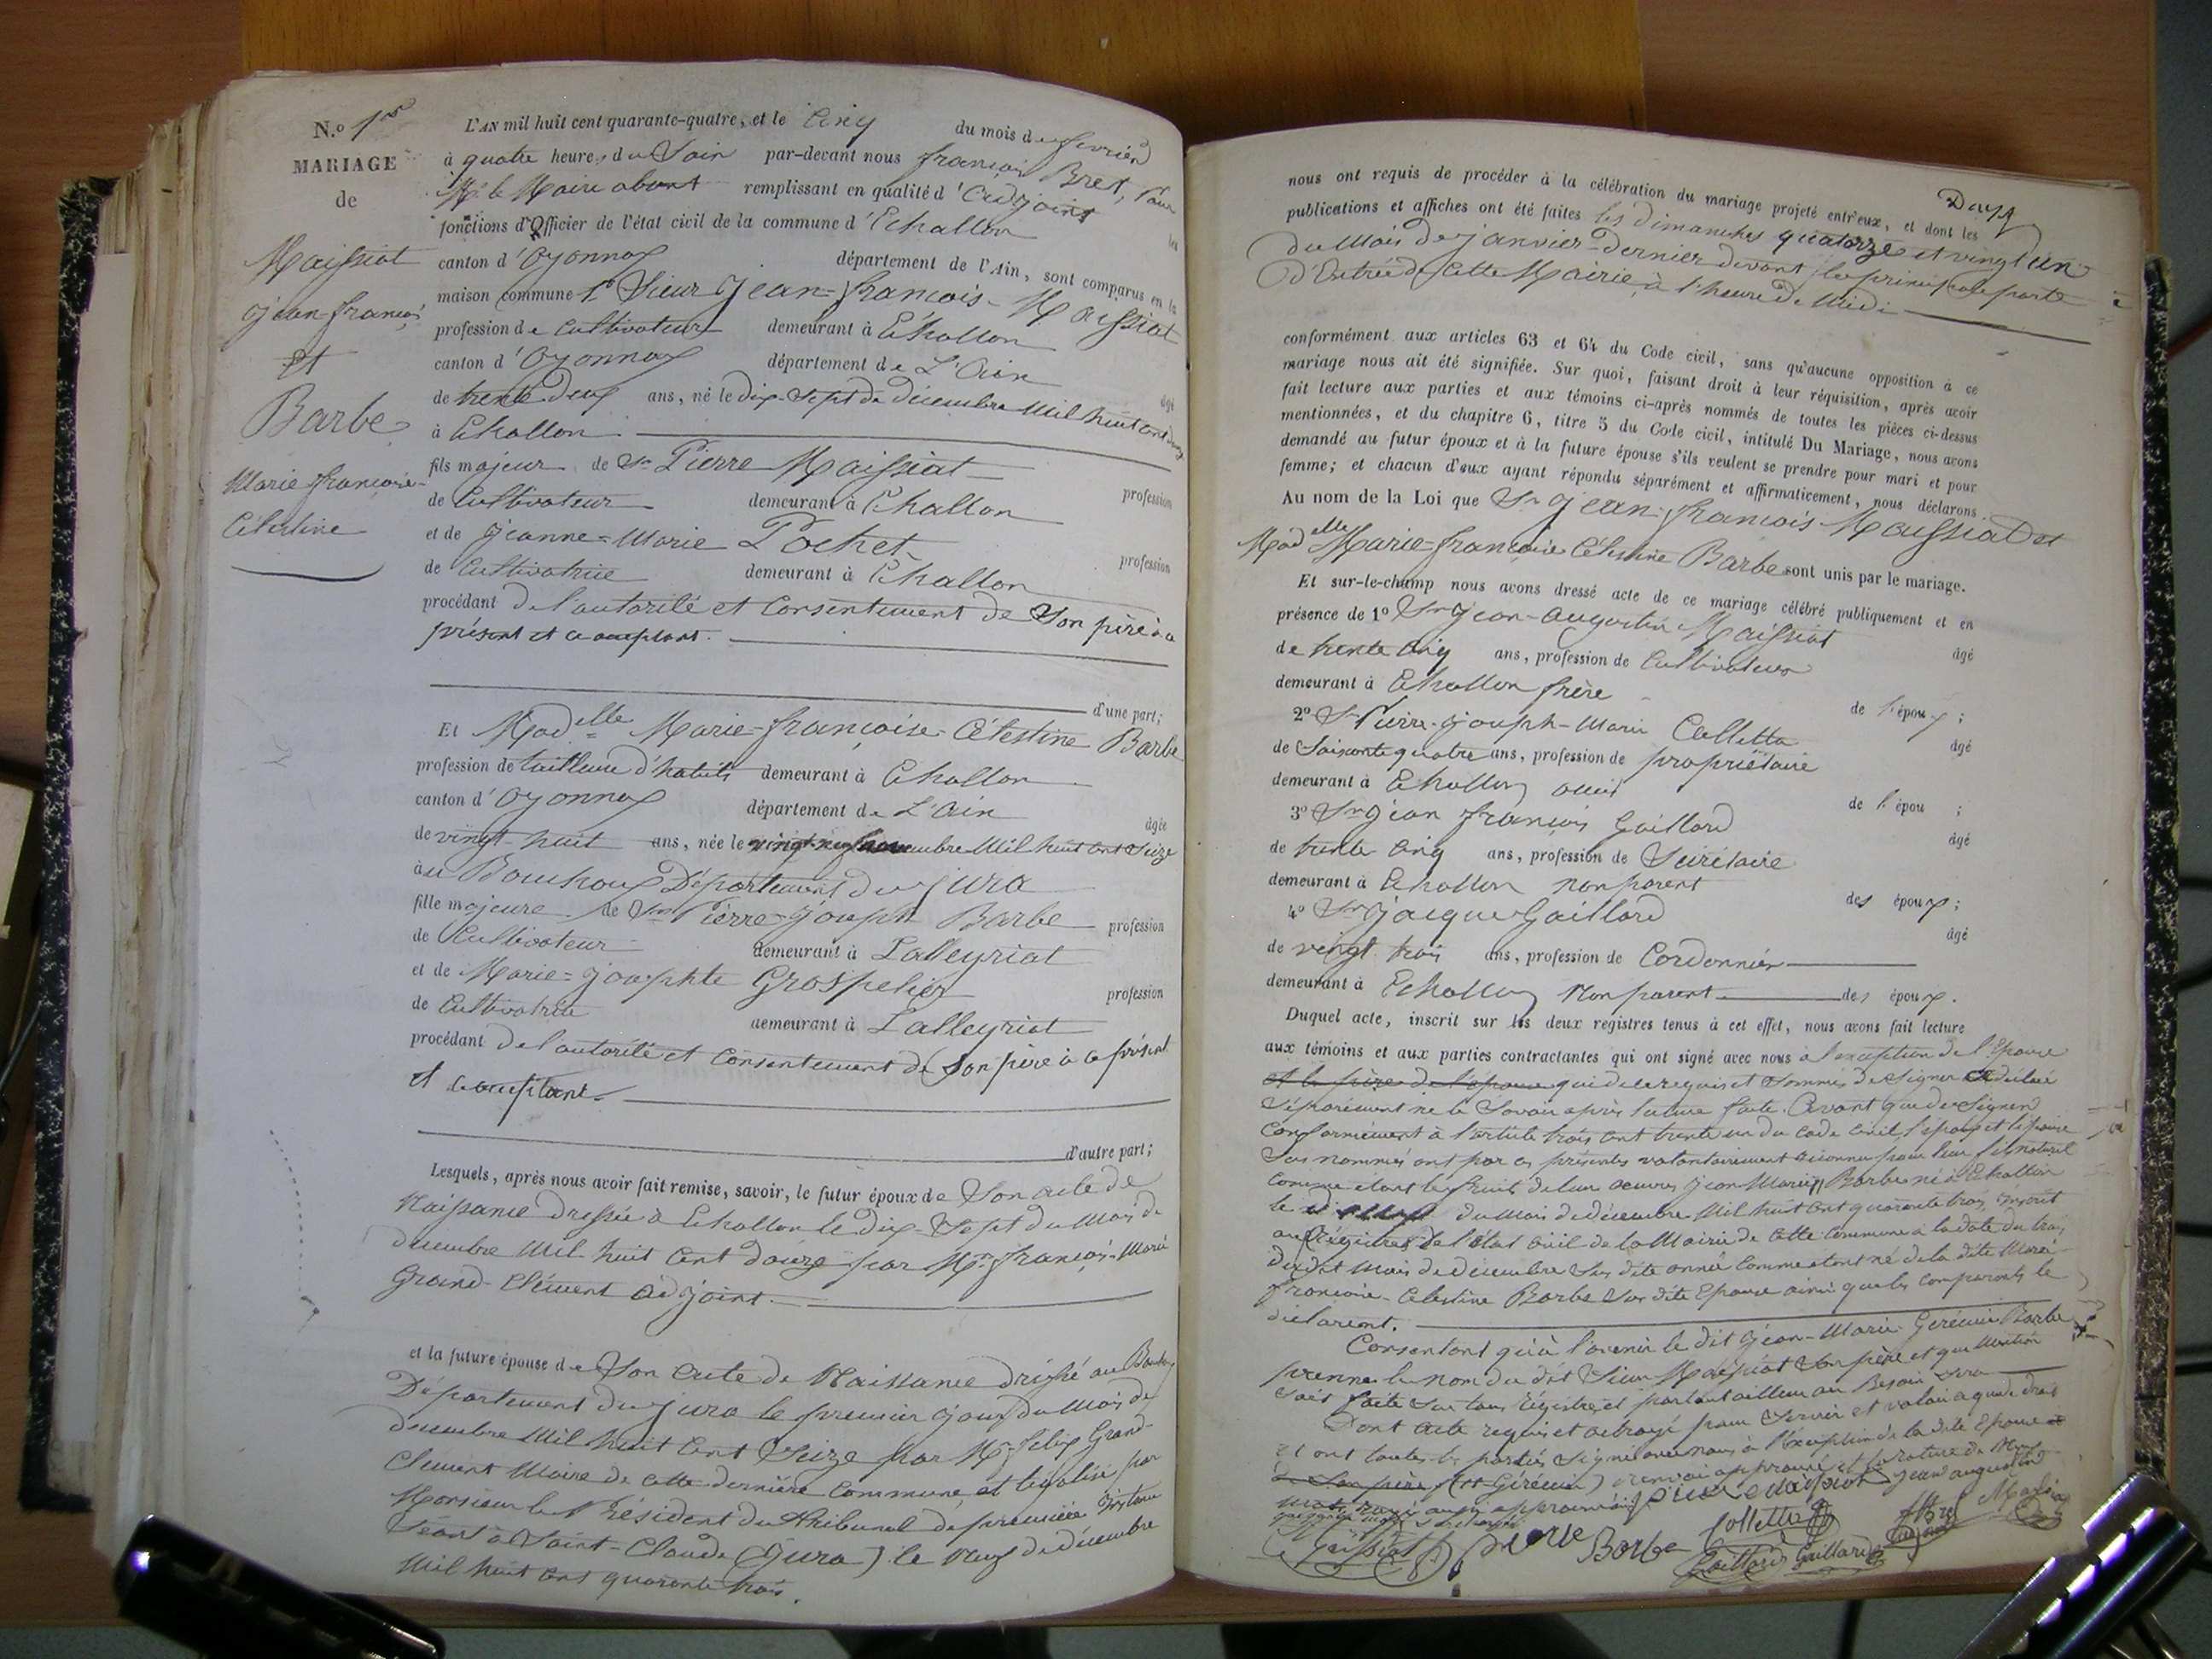 N.o 1er
MARIAGE
de
Maissiat
jean françois
et
Barbe
Marie françoise
Célestine
L'AN mil huit cent quarante-quatre, et le Cinq du mois de fevrier
à quatre heures du Soir par-devant nous françois Bret, Pour
Mr le Maire absent remplissant en qualité d'adjoint les
fonctions d'Officier de l'état civil de la commune d'Echallon
canton d'Oyonnax département de l'Ain, sont comparus en la
maison commune 1o Sieur Jean=françois-Maissiat
profession de Cultivateur demeurant à Echallon
canton d'Oyonnax département de L'Ain âgé
de trente deux ans, né le dix-Sept de décembre Mil huit cent douze
à Echallon
fils majeur de Sr Pierre Maissiat profession
de Cultivateur demeurant à Echallon
et de Jeanne=Marie Pochet profession
de Cultivatrice demeurant à Echallon
procédant de l'autorité et Consentement de Son père à ce
présent et acceptant.
d'une part;
Et Madelle Marie=françoise-Célestine Barbe
profession de tailleuse d'habits demeurant à Echallon
canton d'Oyonnax département de L'Ain âgée
de vingt-huit ans, née le vingt-neuf novembre Mil huit cent Seize
au Bouchoux Département du jura
fille majeure de Sr Pierre=joseph Barbe profession
de Cultivateur demeurant à Lalleyriat
et de Marie=josephte Grospelier profession
de Cultivatrice demeurant à Lalleyriat
procédant de l'autorité et Consentement de Son père à ce présent
et acceptant.
d'autre part;
Lesquels, après nous avoir fait remise, savoir, le futur époux de Son acte de
Naissance dressée à Echallon le dix-Sept du Mois de
decembre Mil huit Cent douze par Mr françois-Marie
Grand-Clément adjoint.
et la future épouse de Son acte de Naissance dressé au Bouchoux
Département du jura le premier jour du Mois de
decembre Mil huit Cent Seize par Mr felix Grand-
Clement Maire de cette derniere Commune, et légalisé par
Monsieur le Président du tribunal de première instance
Séant à Saint-Claude (Jura) le Neuf de décembre
Mil huit Cent quarante trois.
nous ont requis de procéder à la célébration du mariage projeté entr'eux, et dont les Deux
publications et affiches ont été faites les dimanches quatorze et vingt un
du Mois de janvier-dernier devant la principale porte
d'Entrée de cette Mairie, à l'heure de Midi
conformément aux articles 63 et 64 du Code civil, sans qu'aucune opposition à ce
mariage nous ait été signifiée. Sur quoi, faisant droit à leur réquisition, après avoir
fait lecture aux parties et aux témoins ci-après nommés de toutes les pièces ci-dessus
mentionnées, et du chapitre 6, titre 5 du Code civil, intitulé Du Mariage, nous avons
demandé au futur époux et à la future épouse s'ils veulent se prendre pour mari et pour
femme; et chacun d'eux ayant répondu séparément et affirmativement, nous déclarons
Au nom de la Loi que Sr Jean-françois Maissiat et
Madelle Marie=françoise Célestine Barbe sont unis par le mariage.
Et sur-le-champ nous avons dressé acte de ce mariage célébré publiquement et en
présence de 1o Sr Jean-augustin Maissiat âgé
de trente cinq ans, profession de Cultivateur
demeurant à Echallon frère de l'époux;
2o Sr Pierre-joseph-Marie Colletta âgé
de Soixante quatre ans, profession de propriétaire
demeurant à Echallon ami de l'épou ;
3o Sr Jean françois Gaillard âgé
de trente cinq ans, profession de Secrétaire
demeurant à Echallon non parent des époux;
4o Sr Jacques Gaillard âgé
de vingt trois ans, profession de Cordonnier
demeurant à Echallon Non parent des époux.
Duquel acte, inscrit sur les deux registres tenus à cet effet, nous avons fait lecture
aux témoins et aux parties contractantes qui ont signé avec nous à l'exception de l'Epouse
et le père de l'épouse qui de ce requis et Sommés de Signer a déclaré
Séparément ne le Savoir après lecture faite. Avant que de Signer
Conformément à l'article trois cent trente un du Code Civil, l'époux et l'épouse
Sus nommés ont par ces présentes volontairement reconnu pour leur fils naturel
Comme étant le fruit de leur oeuvres Jean-Marie Barbe né à Echallon
le du Mois de décembre Mil huit Cent quarante trois, inscrit
aux Régistres de l'Etat Civil de la Mairie de cette Commune à la date du trois
du dit Mois de décembre Sus dite année Comme étant né de la dite Marie
françoise-Celestine Barbe Sus dite Epouse ainsi que les comparants le
déclarent.
Consentant qu'à l'avenir le dit Jean-Marie Gérémie Barbe
prenne le nom du dit Sieur Maissiat Son père et que Mention
Soit faite Sur tous Régistres et partout ailleurs au Besoin Sera
Dont acte requis et octroyé pour Servir et valoir à que de droit
Et ont toutes les parties Signé avec nous à l'exception de la dite Epouse
de Son père (et Gérémie) renvoi approuvé et la rature de
Mots rayés aussi approuvés
pierre Maissiat jean augustin
Maissiat
Maissiat pierre Barbe Colletta Bret
adjoint
Gaillard Gaillard